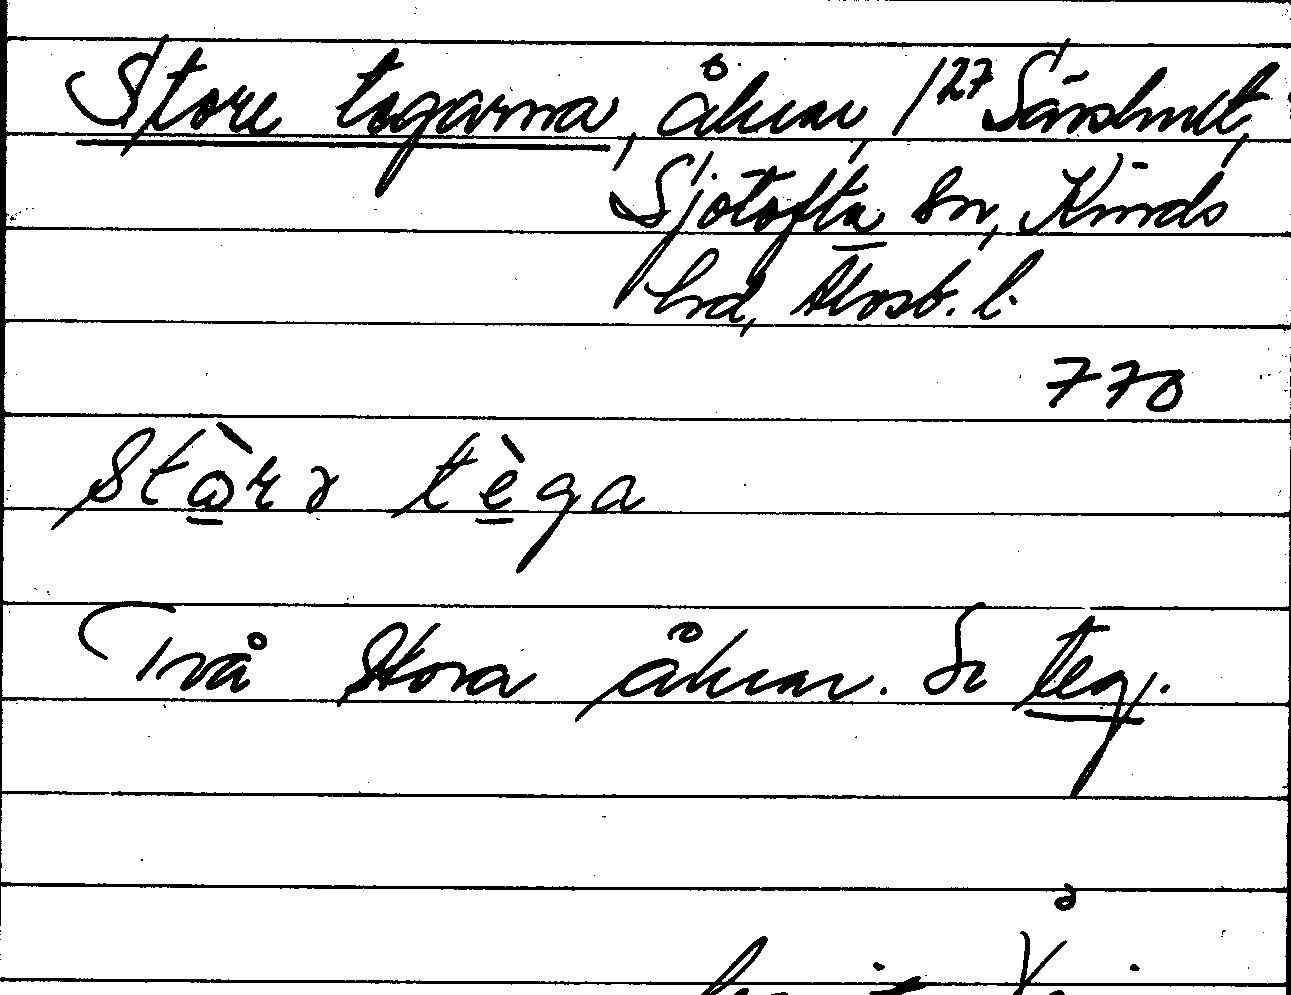 Store tegarna, åkrar, 127 Särshult,
Sjötofta sn, Kinds
hd, Älvsb. l.
770
stòrə tèga
Två stora åkrar. Se teg.